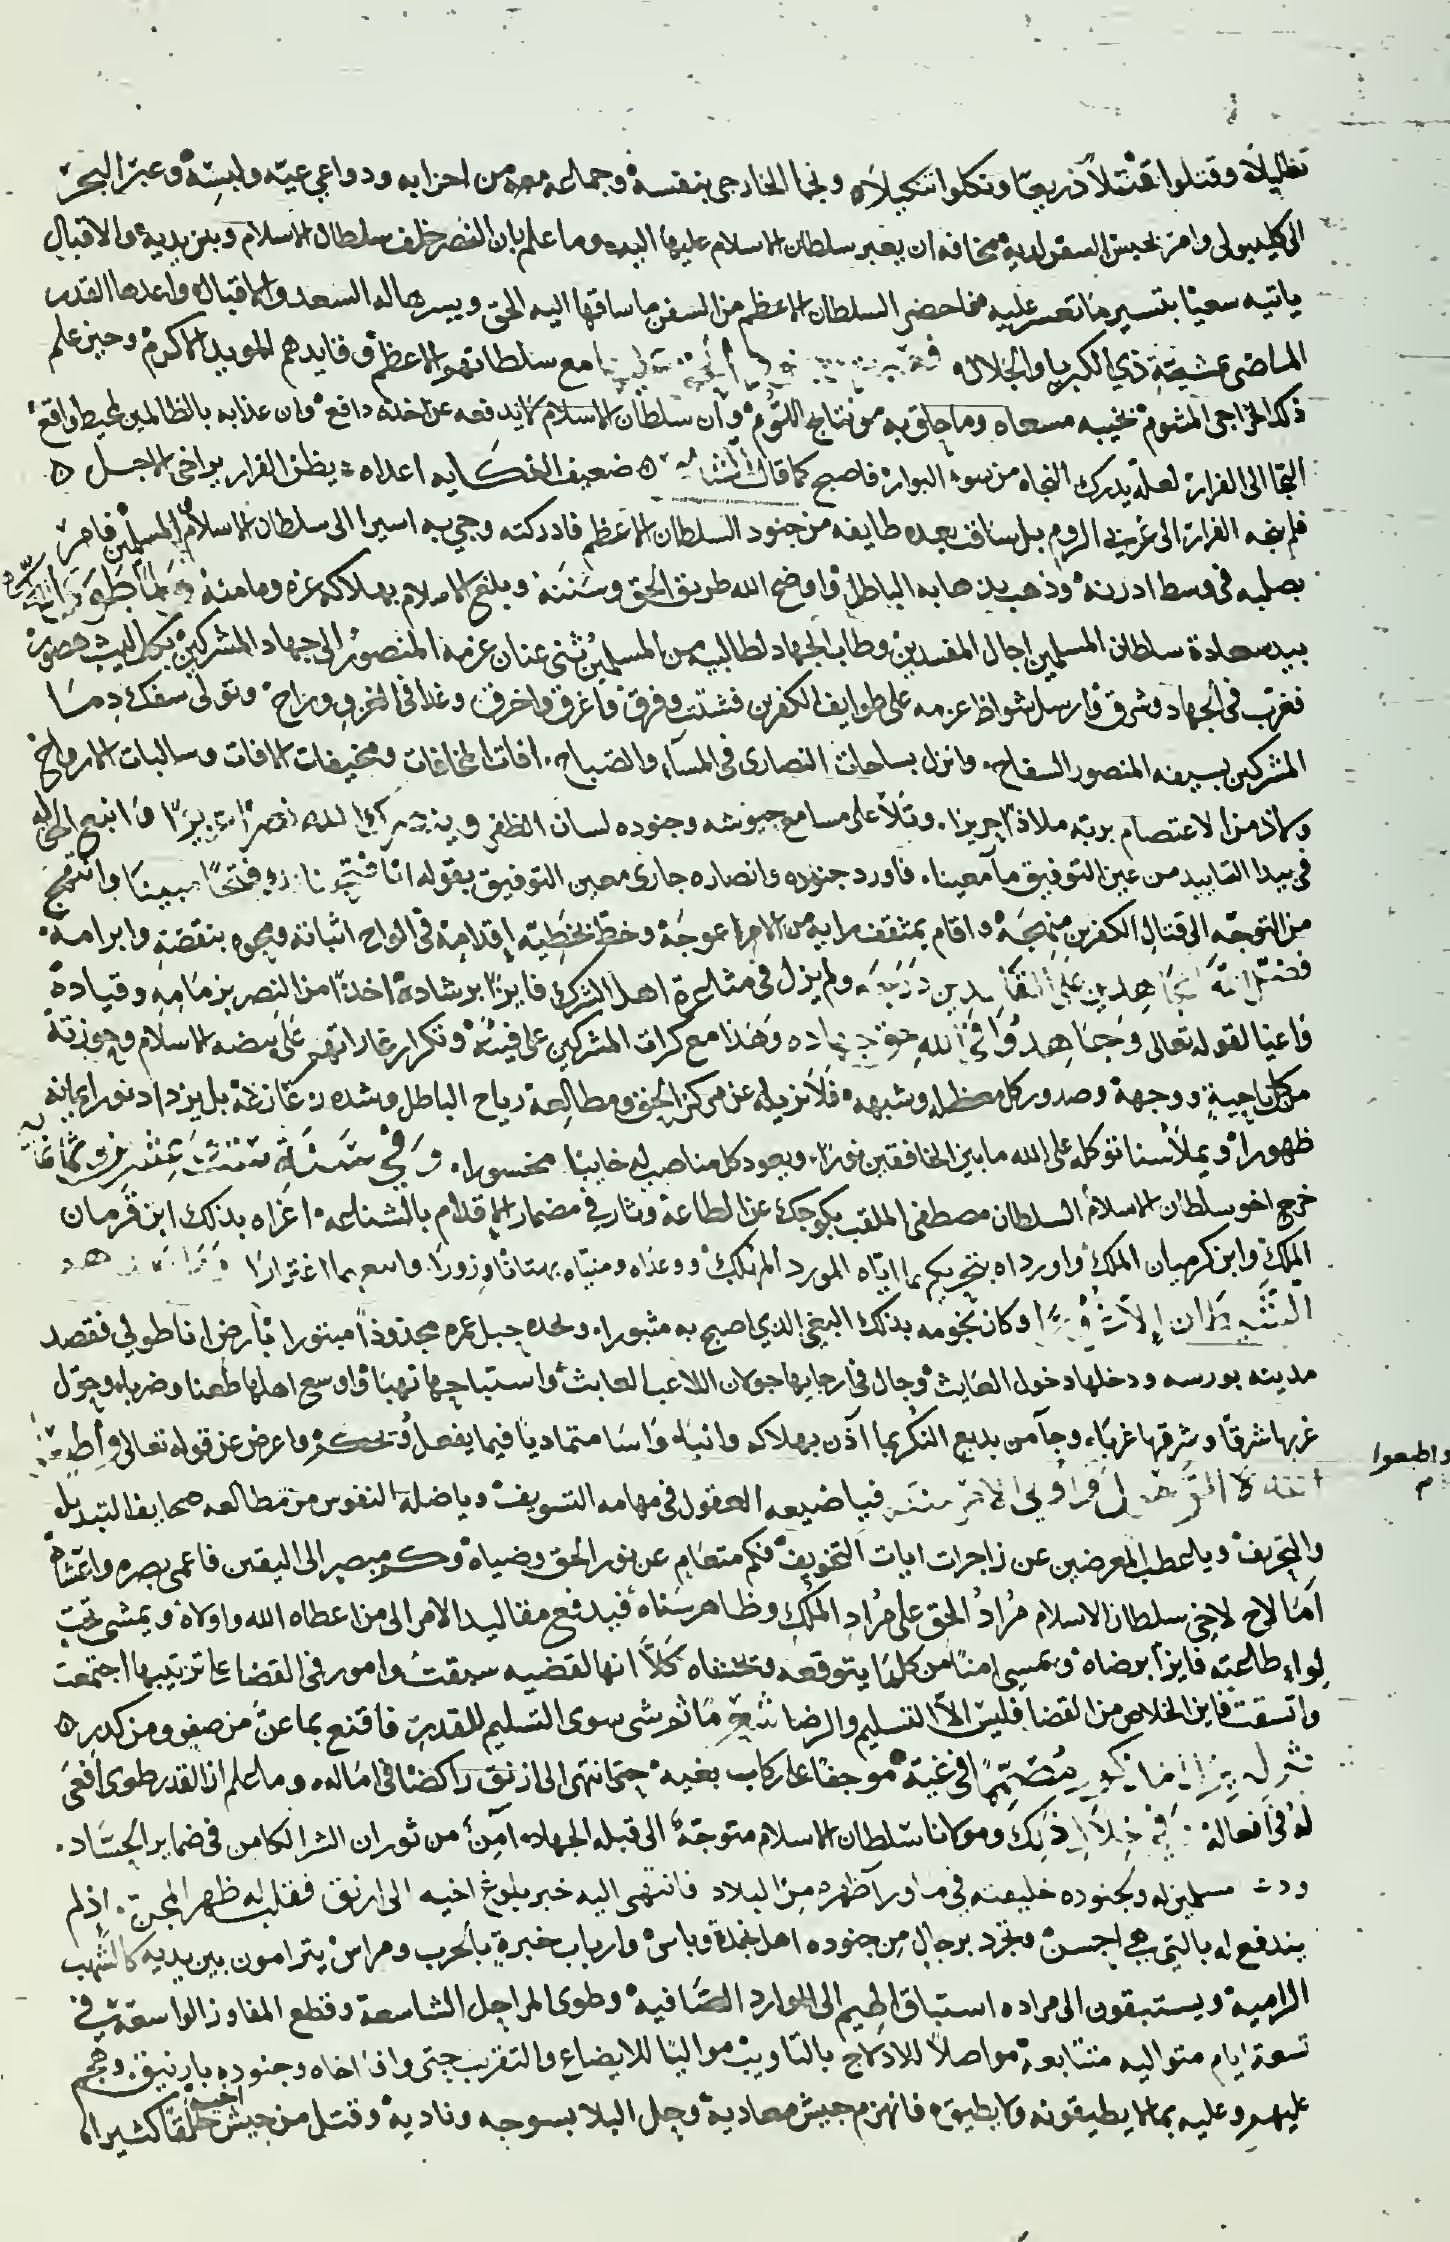 تقليلا وقتلوا قتلا ذريعا ونكلوا تنكيلا ونجا الخارجي بنفسه وجماعه معه من احزابه ودواعي غيه ولبسه وعبر البحر
الى كليبولي وامر بحبس السفن لديه مخافة ان يعبر سلطان الاسلام عليها اليه وما علم بان النصر خلف سلطان الاسلام وبين يديه والاقبال
ياتيه سعيا بتيسير ما تعسر عليه فما حضر السلطان الاعظم من السفن ما ساقها اليه الحق ويسرها له السعد والاقبال واعدها القدر
الماضي بمشيئة ذي الكبريا والجلال مع سلطانهم الاعظم وقايدهم المويد الاكرم وحين علم
ذلك الخارجي المشوم بخيبه مسعاه وما حاق به من نتايج اللوم وان سلطان الاسلام لا يدفعه عن اخذه دافع وان عذابه بالظالمين لمحيط واقع
التجا الى الفرار لعله يدرك النجاه من سوء البوار فاصبح كما قال ضعيف النكايه اعداه يظن الفرار يراخي الاجل
فلم ينجه الفرار الى غربي الروم بل ساق بعده طايفه من جنود السلطان الاعظم فادركته وجي به اسيرا الى سلطان الاسلام والمسلمين فامر
بصلبه في وسط ادرنه وذهب بذهابه الباطل واوضح الله طريق الحق وسننه وبلغ الاسلام بهلاكه عزه ومامنه ولما طوى
بيد سعادة سلطان المسلمين اجال المفسدين وطاب الجهاد لطالبيه من المسلمين ثنى عنان عزمه المنصور الى جهاد المشركين بكل ليث هصور
فغرب في الجهاد وشرق وارسل شواظ عزمه على طوايف الكفر فشتت وفرق واغرق واحرق وغدا في الغزو وراح وتولى سفك دما
المشركين بسيفه المنصور السفاح وانزل بساحات النصارى في المسآء والصباح افات المخافات ومخيفات الافات وسالبات الارواح
ولاذ من الاعتصام بربه ملاذا حريزا وتلا على مسامع جيوشه وجنوده لسان الظفر وينصرك الله نصرا عزيزا وانبع الحق له
في بيدا التاييد من عين التوفيق مآ معينا فاورد جنوده وانصاره جارى معين التوفيق بقوله انا فتحنا لك فتحا مبينا وانتهج
من التوجه الى قتال الكفرين منهجه واقام بمثقف رايه من الامر اعوجه وخط بخطيه اقدامه في الواح اثباته ومحوه بنقضه وابرامه
فضل الله المجاهدين على القاعدين درجة ولم يزل في مثاغرة اهل الشرك فايزا برشاده اخذا من النصر بزمامه وقياده
واعيا لقوله تعالى وجاهدوا في الله حق جهاده وهذا مع كرات المشركين على فيئه وتكرار غاراتهم على بيضه الاسلام وحوزته
من كل ناحية ووجهة وصدور كل معضله وشبهه فلا تزيله عن مركز الحق ومطالعه رياح الباطل وشده زعازعه بل يزداد نور ايمانه
ظهورا ويملا سنا توكله على الله ما بين الخافقين نورا ويعود كل مناصب له خايبا محسورا وفي سنة ست عشرة وثمانمايه
خرج اخو سلطان الاسلام السلطان مصطفى الملقب بكوجك عن الطاعه وثار في مضمار الاقدام بالشناعه اغراه بذلك ابن قرمان
الملك وابن كرميان الملك واورداه بتحريكهما اياه المورد المهلك ووعداه ومنياه بهتانا وزورا واسعهما اغترارا وما يعدهم
الشيطان الا غرورا وكان نجومه بذلك البغي الذي اصبح به مثبورا وغدا حبل عمره مجذوذا مبتورا بارض اناطولي فقصد
مدينه بورسه ودخلها دخول العايث وجال في ارجايها جولان اللاعب العابث واستباحها نهبا واوسع اهلها طعنا وضربا وحول
غربها شرقا وشرقها غربا وجآ من بديع النكر بما آذن بهلاكه وانبا واسا متماديا فيما يفعل وتحكم واعرض عن قوله تعالى واطيعوا
الله والرسول واولي الامر منكم فيا ضيعه العقول في مهامه التسويف ويا ضلة النفوس من مطالعه صحايف التبديل
والتحريف ويا عطب المعرضين عن زاجرات ايات التخويف فكم متعام عن نور الحق وضياه وكم مبصر الى اليقين فاعمى بصره واغشاه
اما لاح لاخي سلطان الاسلام مراد الحق على مراد الملك وظاهر سناه فيدفع مقاليد الامر الى من اعطاه الله واولاه ويمشي تحت
لواء طاعته فايزا برضاه ويمسي امنا من كلما يتوقعه وتخشاه كلا انها لقضيه سبقت وامور في القضا على ترتيبها اجتمعت
واتسقت فاين الخلاص من القضا فليس الا التسليم والرضا شعر ما ثم شي سوى التسليم للقدر فاقنع بما عن من صفو ومن كدر
ثم له يزل مصمما في غيه موجفا على ركاب بغيه حتى انتهى الى ازنق راكضا في اماله وما علم ان القدر طوى افعى
له في افعاله وفي خلال ذلك ومولانا سلطان الاسلام متوجه الى قبله الجهاد آمن من ثوران الشر الكامن في ضماير الحساد
وجنوده خليفته في ما ورآ ظهره من البلاد فانتهى اليه خبر بلوغ اخيه الى ازنق فقلب له ظهر المجن اذ لم
يندفع له بالتي هي احسن وتجرد برجال من جنوده اهل نجدة وباس وارباب خبرة بالحرب ومراس يترامون بين يديه كالشهب
الراميه ويستبقون الى مراده استباق الهيم الى الموارد الصافيه وطوى المراحل الشاسعة وقطع المفاوز الواسعة في
تسعة ايام متواليه متتابعه مواصلا للادلاج بالتاويب مواليا للايضاع والتقريب حتى وافا اخاه وجنوده بازنيق وهجم
عليهم وعليه بما لا يطيقونه ولا يطيق فانهزم جيش معاديه وحل البلا بسوحه وناديه وقتل من جيش اخيه خلقا كثيرا
واطيعوا
م